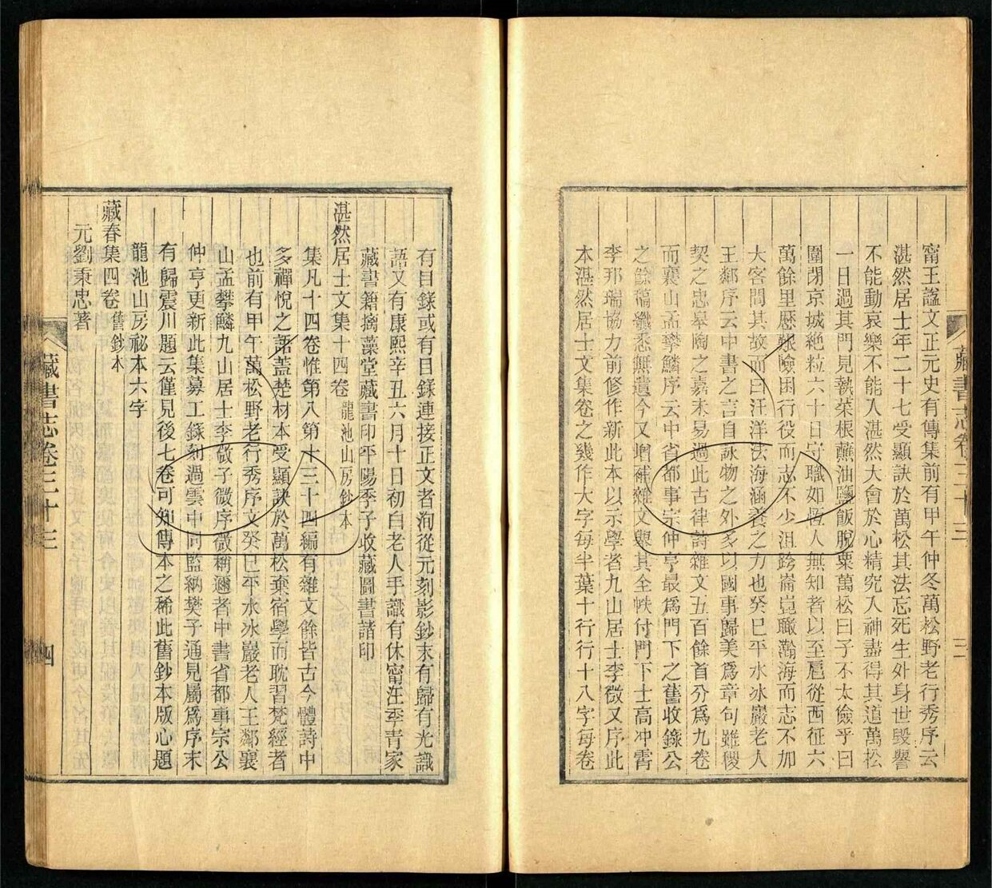 甯王謐文正元史有傳集前有甲午仲冬萬松野老行秀序云
湛然居士年二十七受顯訣於萬松其法忘死生外身世毀譽
不能動哀樂不能入湛然大會於心精究入神盡得其道萬松
一日過其門見執菜根蘸油鹽飯脫粟萬松曰子不太儉乎曰
圍閉京城絶粒六十日守職如恆人無知者以至扈從西征六
萬餘里歷艱險困行役而志不少沮跨崙崑瞰瀚海而志不加
大客問其故而曰汪洋法海涵養之力也癸巳平水冰巖老人
王鄰序云中書之言自詠物之外多以國事歸美爲章句雖稷
契之忠皋陶之嘉未易過此古律詩雜文五百餘首分爲九卷
而襄山孟攀鱗序云中省都事宗仲亨最爲門下之舊收錄公
之餘稿纖悉無遺今又增補雜文與其全帙付門下士高冲霄
李邦瑞協力前修作新此本以示學者九山居士李微又序此
本湛然居士文集卷之幾作大字每半葉十行行十八字每卷
藏書志卷三十三
三
有目錄或有目錄連接正文者洵從元刻影鈔末有歸有光識
語又有康熙辛丑六月十日初白老人手識有休甯汪季青家
藏書籍摛藻堂藏書印平陽季子收藏圖書諸印
湛然居士文集十四卷 龍池山房鈔本
集凡十四卷惟第八第十三十四編有雜文餘皆古今體詩中
多禪悅之語蓋楚材本受顯訣於萬松棄宿學而耽習梵經者
也前有甲午萬松野老行秀序文癸巳平水冰巖老人王鄰襄
山孟攀鱗九山居士李微子微序微稱邇者中書省都事宗公
仲亨更新此集募工錄刻過雲中同監納樊子通見屬爲序末
有歸震川題云僅見後七卷可知傳本之稀此舊鈔本版心題
龍池山房祕本六字
藏春集四卷 舊鈔本
元劉秉忠著
藏書志卷三十三
四